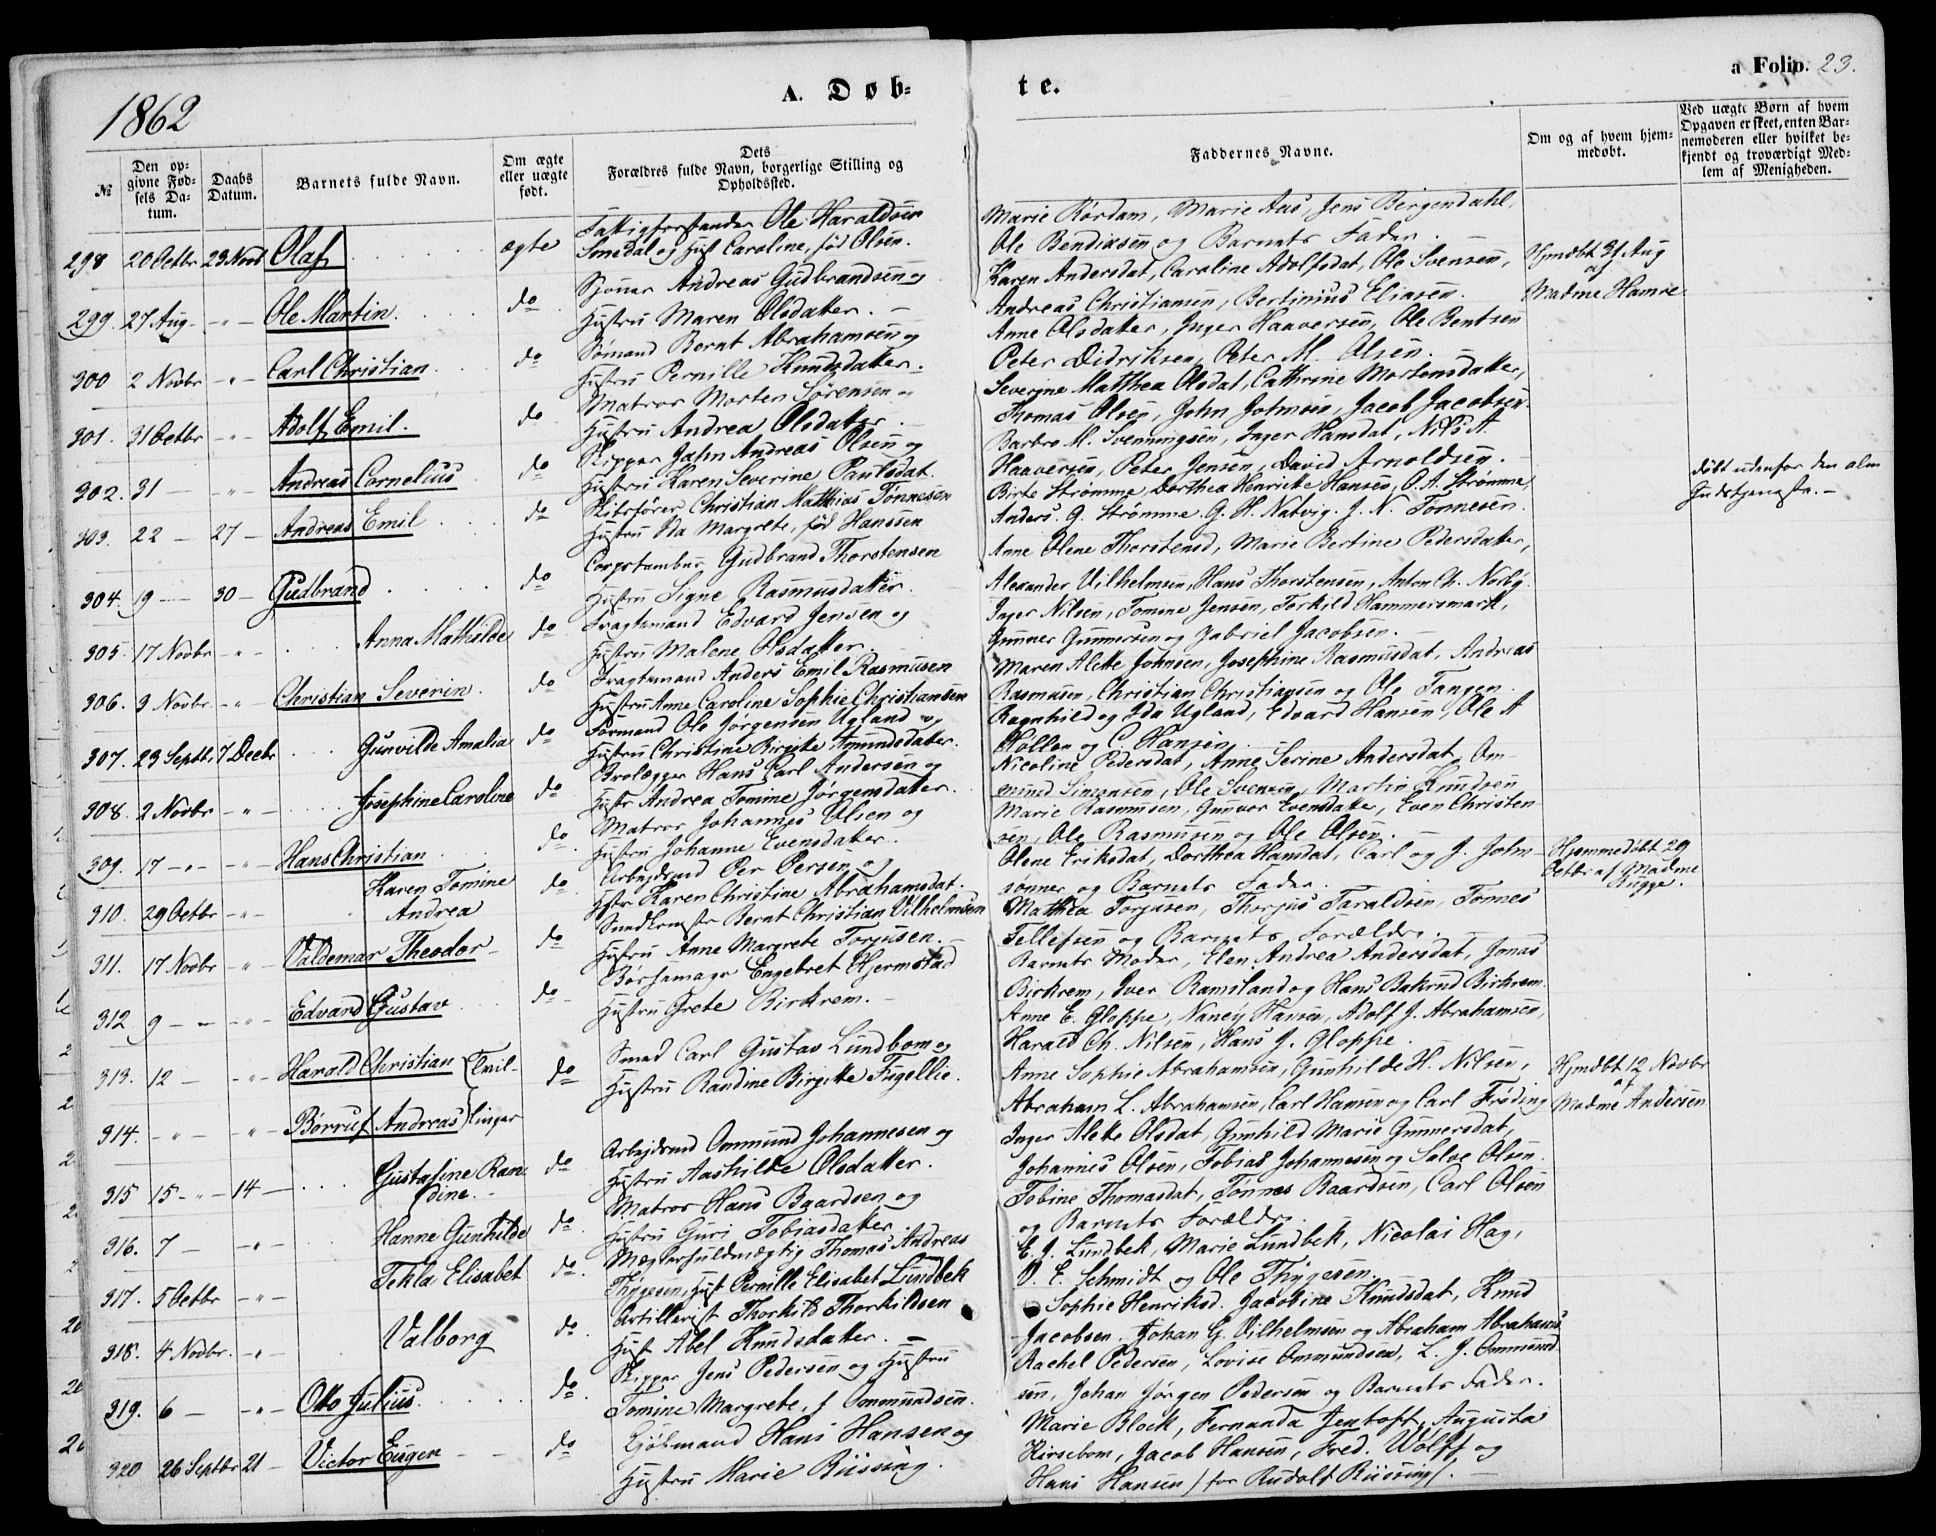 1862
A. Døb-
te.
a Folio. 23.
№
Den opgivne Fødsels Datum.
Daabs Datum.
Barnets fulde Navn.
Om ægte eller uægte født.
Dets Forældres fulde Navn, borgerlige Stilling og Opholdssted.
Faddernes Navne.
Om og af hvem hjemmedøbt.
Ved uægte Børn af hvem Opgaven er skeet, enten Barnemoderen eller hvilket bekjendt og troværdigt Medlem af Menigheden.
298 20 Octbr 23 Novb Olaf ægte Fattigforstander Ole Haraldsen
Smedal og Hust Caroline, fød Olsen.
Marie Rørdam, Marie Aas, Jens Bergendahl,
Ole Bendixsen og Barnets Fader.
299. 27 Aug. -"- Ole Martin. do Andreas Gudbrandsen og
Hustru Maren Olsdatter. -
Karen Andersdat, Caroline Adolfsdat, Ole Svensen,
Andreas Christiansen, Bertinius Eliasen.
Hjmdbt 31 Aug
af
Madme Hamre
300 2 Novbr -"- Carl Christian. do Sømand Bernt Abrahamsen og
Hustru Pernille Knudsdatter.
Anne Olsdatter, Inger Haaversen, Ole Bentsen
Peter Didriksen, Peter M. Olsen.
301. 31 Octbr -"- Adolf Emil. do Matros Morten Sørensen og
Hustru Andrea Olsdatter.
Severine Matthea Olsdat, Cathrine Mortensdatter,
Thomas Olsen, John Johnsen, Jacob Jacobsen.
302. 31 - -"- Andreas Cornelius do Skipper Jahn Andreas Olsen og
Hustru Karen Severine Paulsdat.
Barbro M. Svenningsen, Inger Hansdat, Nils A.
Haaversen, Peter Jensen, David Arnoldsen.
303. 22 - 27 - Andreas Emil do Skibsfører Christian Mathias Tønnesen
Hustru Ida Margrete, fød Hanssen
Birte Strømme, Dorthea Henriette Hansen, O. A. Strømme,
Anders G. Strømme, G. H. Natvig. J. N. Tønnesen.
Døbt udenfor den alm
Gudstjeneste. -
304. 19 - 30 - Gudbrand do Corpstambur Gudbrand Thorstensen
Hustru Signe Rasmusdatter.
Anne Olene Thorstensd, Marie Bertine Pedersdatter,
Alexander Vilhelmsen, Hans Thorstensen, Anton Ch. Norby.
305. 17 Novbr -"- Anna Mathilde do Fragtemand Edvard Jensen og
Hustru Malene Olsdatter.
Inger Nilsen, Tomine Jensen, Torkild Hammersmark,
Gunner Gunnersen og Gabriel Jacobsen.
306. 3 Novbr. -"- Christian Severin. do Fragtemand Anders Emil Rasmusen
Hustru Anne Caroline Sophie Christiansen
Maren Alette Johnsen, Josephine Rasmusdat, Andreas
Rasmusen, Christian Christiansen og Ole Tangen.
307. 23 Septbr. 7 Decbr Gunvilde Amalia do Formand Ole Jørgensen Ugland og
Hustru Christine Birgitte Amundsdatter.
Ragnhild og Ida Ugland, Edvard Hansen, Ole A
Møller og C. Hansen.
308. 2 Novbr -"- Josephine Caroline do Brolægger Hans Carl Andersen og
Hustr Andrea Tomine Jørgensdatter.
Nicoline Pedersdat, Anne Serine Andersdat, Om-
mund Simonsen, Ole Svensen, Martin Knudsen
309. 17 -"- -"- Hans Christian do. Matros Johannes Olsen og
Hustru Johanne Evensdatter.
Marie Rasmusen, Gunvor Evensdatter, Even Christen
sen, Ole Rasmusen og Ole Olsen.
310. 29 Octbr -"- Karen Tomine
Andrea do Arbejdsmd Per Persen og
Hstr Karen Christine Abrahamsdat.
Olene Eriksdat, Dorthea Hansdat, Carl og J. John-
sønner og Barnets Fader.
Hjemmedøbt 29
Octbr af Madme
Rugge.
311. 17 Novbr -"- Valdemar Theodor do Bernt Christian Vilhelmsen
Hustru Anne Margrete Torjusen.
Mathea Torjusen, Thorjus Taraldsen, Tønnes
Tellefsen og Barnets Forældre.
312 9 - -"- Edvard Gustav do Børsemager Engebret Hjermstad
Hustru Grete Birkrem. -
Barnets Moder, Elen Andrea Andersdat, Jonas
Birkrem, Iver Ramsland og Hans Bakrud Birkrem.
313. 12 - -"- Harald Christian } Tvil-
314. -"- -"- Børruf Andreas } linger
do Smed Carl Gustav Lundbom og
Hustru Randine Birgitte Fugellie.
Anne E. Gloppe, Nancy Hansen, Adolf J. Abrahamsen,
Harald Ch. Nilsen, Hans J. Gloppe.
Anne Sophie Abrahamsen, Gunhilde H. Nilsen,
Abraham L. Abrahamsen, Carl Hansen og Carl Frøding
Hjmdbt 12 Novbr
af
Madme Andersen
315 15 -"- 14 - Gustafine Ran-
dine. do Arbejdsmd Ommund Johannesen og
Hustru Aashilde Olsdatter.
Inger Alette Olsdat, Gunhild Marie Gunnersdat,
Johannes Olsen, Tobias Johannesen og Salve Olsen.
316. 7 - -"- Hanne Gunhilde do. Matros Hans Baardsen og
Hustru Guri Tobiasdatter
Tobine Thomasdat, Tønnes Baardsen, Carl Olsen
og Barnets Forældre.
317. 5 Octbr -"- Tekla Elisabet do. Mæglerfuldmægtig Thomas Andreas
Thygesen, Hust Pernille Elisabet Lundbek
E. J. Lundbek, Marie Lundbek, Nicolai Hag,
V. E. Schmidt og Ole Thygesen.
318. 4 Novbr. -"- Valborg do. Artillerist Thorkild Thorkildsen
Hust Abel Knudsdatter. -
Sophie Henriksd. Jacobine Knudsdat, Knud
Jacobsen. Johan G. Vilhelmsen og Abraham Abrahams
319. 6 - -"- Otto Julius. do. Skipper Jens Pedersen og Hustru
Tomine Margrete, f Ommundsen.
Rachel Pedersen, Lovise Ommundsen, L. J. Ommund
sen, Johan Jørgen Pedersen og Barnets Fader.
320 26 Septbr 21 - Victor Eugen do Kjøbmand Hans Hansen og
Hustru Marie Büssing.
Marie Block, Fernanda Jentoft, Augusta
Kirsebom, Jacob Hansen, Fred. Wolff og
Hans Hansen / for Rudolf Büssing /. -